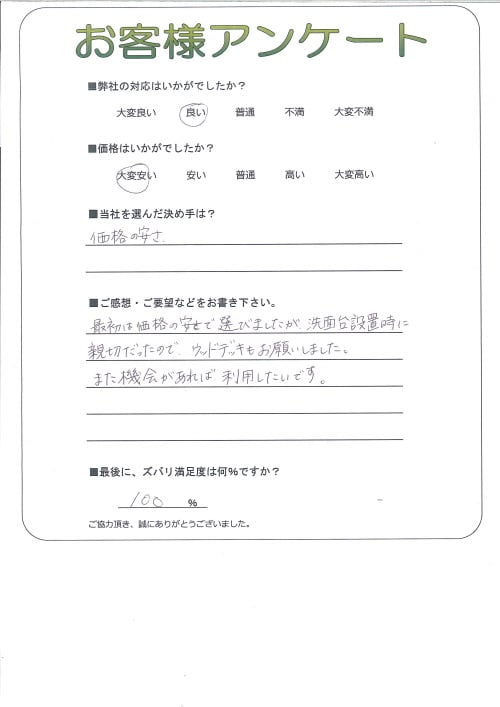 お客様アンケート
■弊社の対応はいかがでしたか？
大変良い 良い 普通 不満 大変不満
■価格はいかがでしたか？
大変安い 安い 普通 高い 大変高い
■当社を選んだ決め手は？
価格の安さ
■ご感想・ご要望などをお書き下さい。
最初は価格の安さで選びましたが、洗面台設置時に
親切だったので、ウッドデッキもお願いしました。
また機会があれば利用したいです。
■最後に、ズバリ満足度は何％ですか？
100 ％
ご協力頂き、誠にありがとうございました。